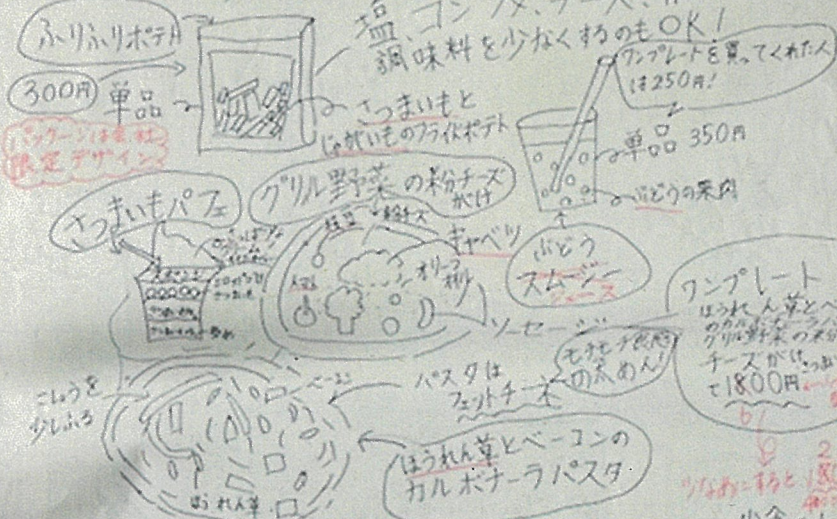 ふりふりポテト
300円
単品
パッケージは会社
限定デザイン
塩、コンソメ、チーズ、
調味料を少なくするのもOK!
さつまいもと
じゃがいものフライドポテト
ワンプレートを買ってくれた人
は250円!
単品 350円
ぶどうの果肉
ぶどう
スムージー
ジュース
さつまいもパフェ
グリル野菜の粉チーズ
がけ
枝豆
粉チーズ
キャベツ
トマト
オリーブ
オイル
ソーセージ
ワンプレート
ほうれん草とベ
のカルボナーラ
グリル野菜の粉
チーズがけ
で1800円
モチモチ食感
の太めん!
こしょうを
少しふる
ベーコン
パスタは
フェットチーネ
ほうれん草
ほうれん草とベーコンの
カルボナーラパスタ
少なめにすると